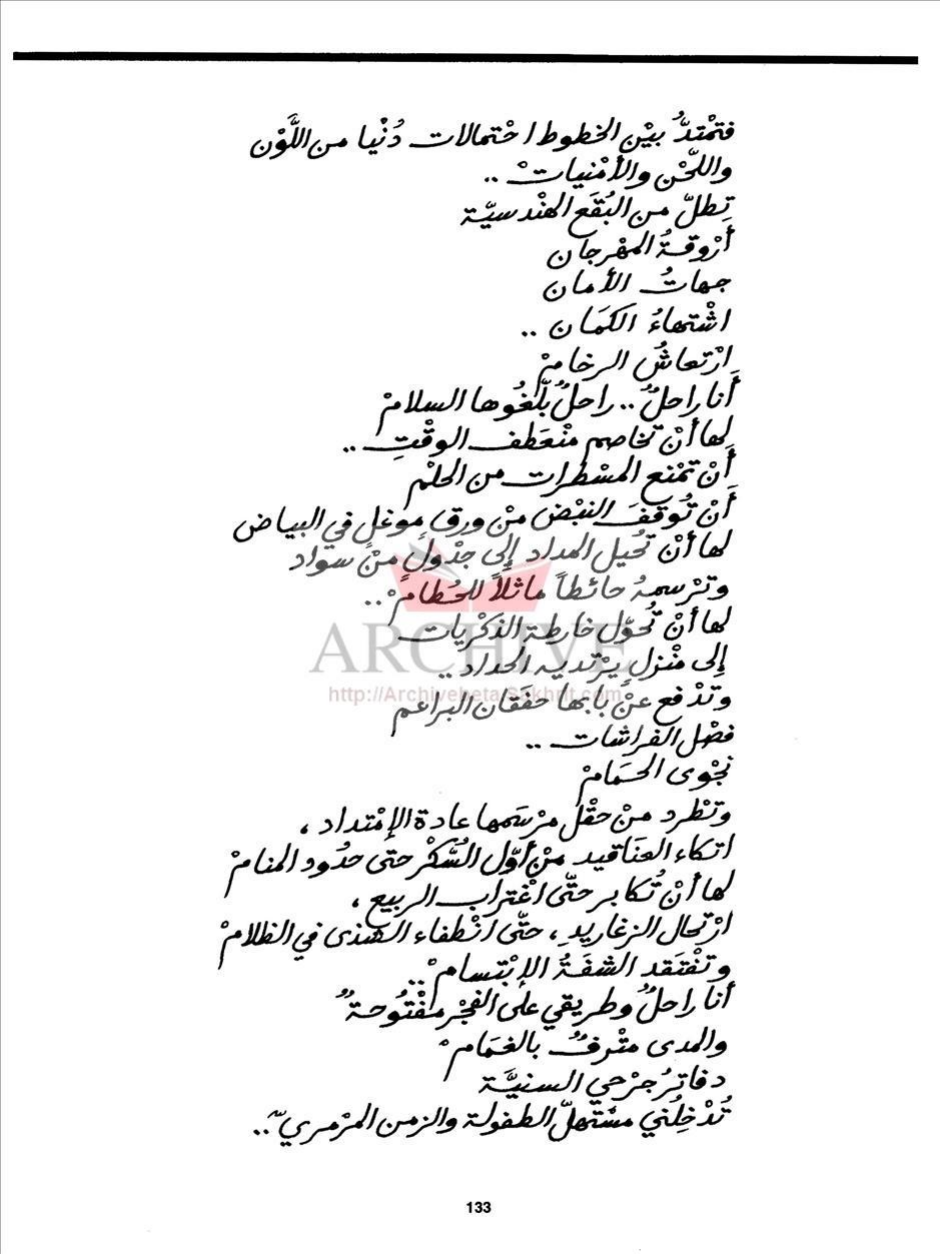 فتمْتدُّ بيْن الخطوط احْتمالات دُنْيا من اللَّوْن
واللّحْن والأمْنيات ..
تِطلّ من البُقَع الهنْدسيّة
أرْوقةُ المهْرجان
جهاتُ الأمان
اشْتهاءُ الكمَان ..
اِرْتعاشُ الرخامْ
أنا راحلٌ .. راحلٌ بلّغُوها السلامْ
لها أنْ تخاصم منْعَطف الوقْتِ ..
أَنْ تمْنع المسْطرات من الحلْم
أَنْ تُوقفَ النبْض منْ ورقٍ موغلٍ في البياض
لها أنْ تحُيل المداد إلى جدْولٍ منْ سواد
وترْسمهُ حائطاً ماثلاً للحُطامْ ..
لها أنْ تُحوّل خارطة الذكْريات
إلى منْزلٍ يرْتديه الحداد ..
وتدْفع عنْ بابها خفَقان البراعم
فصْل الفراشات ..
نجْوى الحمَامْ
وتطْرد منْ حقْل مرْسَمها عادة الإمْتداد ،
اتكاء العنَاقيد منْ أوّل السُّكْر حتى حدُود المنامْ
لها أنْ تُكابر حتّى اغْتراب الربيع ،
ارْتحال الزغاريدِ ، حتّى انْطفاء الشذى في الظلامْ
وتفْتَقد الشفَةُ الإبْتسامْ ..
أنا راحلٌ وطريقي على الفجْر مفْتُوحةٌ
والمدى متْرفٌ بالغمَامْ
دفاترُ جرْحي السنيَّة
تُدْخِلُني مسْتهلّ الطفولة والزمن المرْمريّ ..
ARCHIVE
http://Archivebeta.Sakhrit.com
133